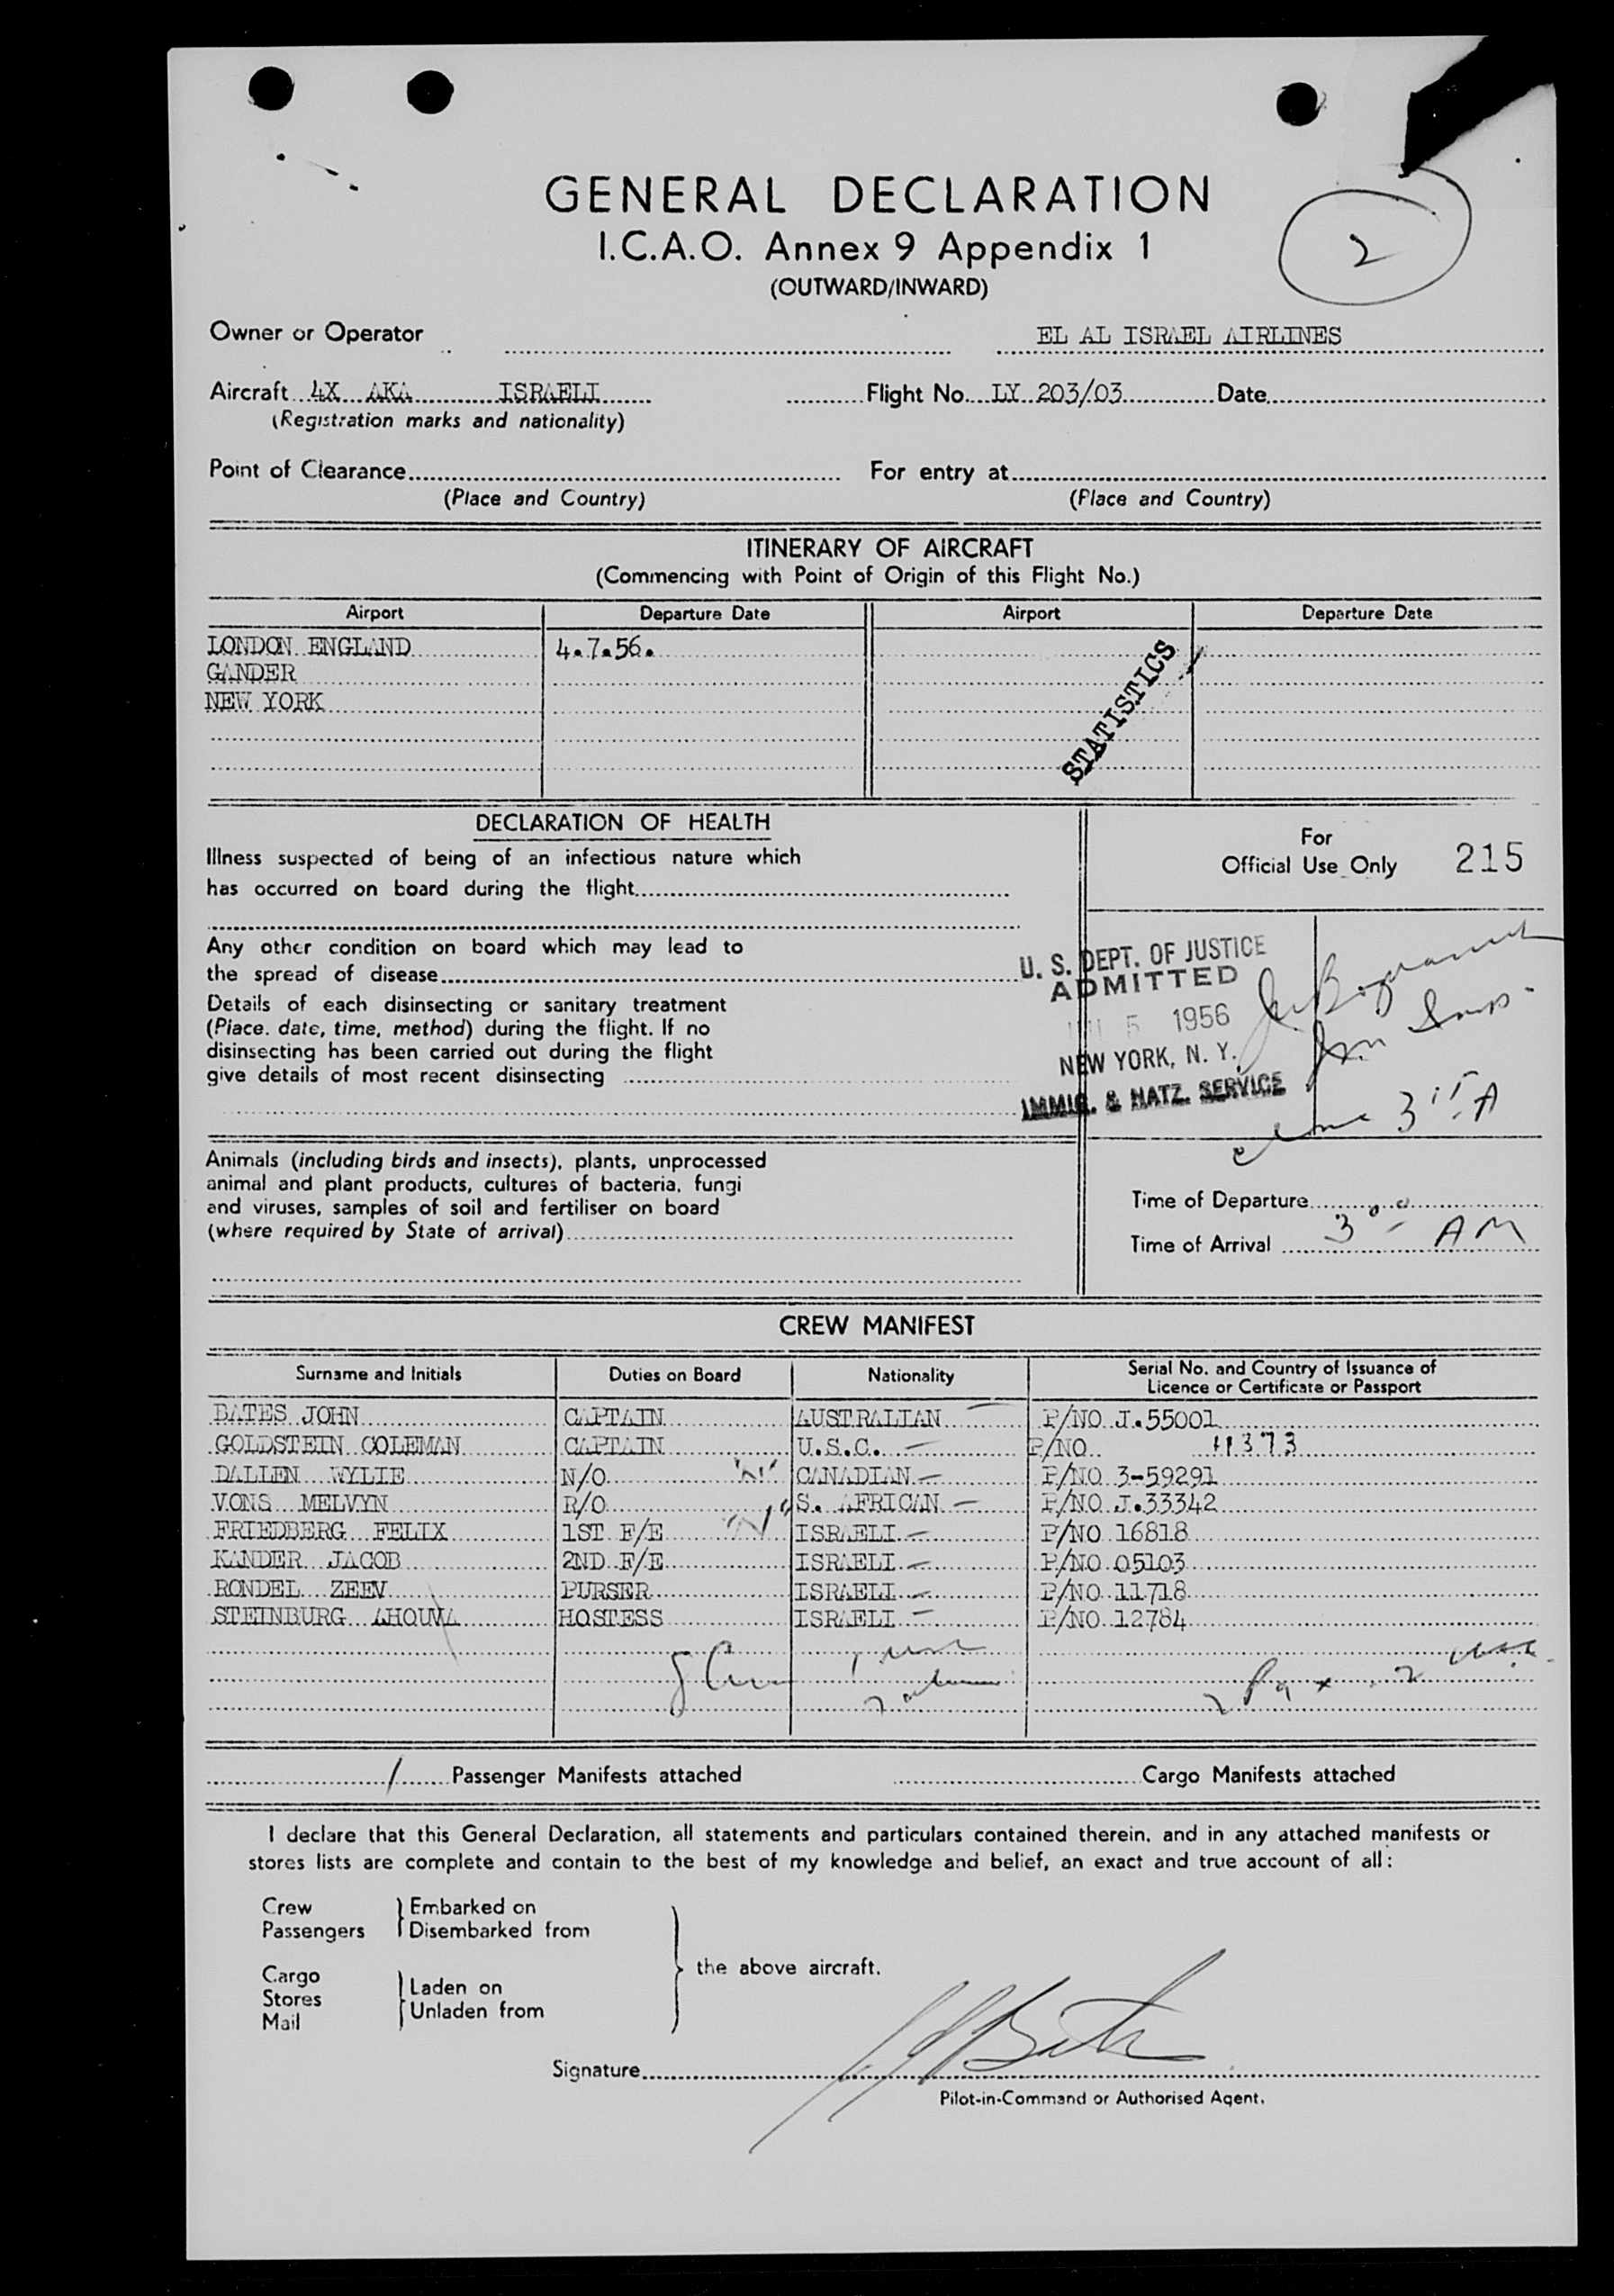 2
GENERAL DECLARATION
I.C.A.O. Annex 9 Appendix 1
(OUTWARD/INWARD)
Owner or Operator EL AL ISRAEL AIRLINES
Aircraft 4X AKA ISRAELI Flight No. LY 203/03 Date
(Registration marks and nationality)
Point of Clearance For entry at
(Place and Country) (Place and Country)
ITINERARY OF AIRCRAFT
(Commencing with Point of Origin of this Flight No.)
Airport Departure Date Airport Departure Date
LONDON ENGLAND 4.7.56.
GANDER
NEW YORK
STATISTICS
DECLARATION OF HEALTH
Illness suspected of being of an infectious nature which
has occurred on board during the flight
Any other condition on board which may lead to
the spread of disease
Details of each disinsecting or sanitary treatment
(Place, date, time, method) during the flight. If no
disinsecting has been carried out during the flight
give details of most recent disinsecting
For
Official Use Only 215
U. S. DEPT. OF JUSTICE
ADMITTED
5 1956
NEW YORK, N. Y.
IMMIG. & NATZ. SERVICE
Animals (including birds and insects), plants, unprocessed
animal and plant products, cultures of bacteria, fungi
and viruses, samples of soil and fertiliser on board
(where required by State of arrival)
Time of Departure
Time of Arrival 3 00 AM
CREW MANIFEST
Surname and Initials Duties on Board Nationality Serial No. and Country of Issuance of
Licence or Certificate or Passport
BATES JOHN CAPTAIN AUSTRALIAN P/NO J.55001
GOLDSTEIN COLEMAN CAPTAIN U.S.C. P/NO 11373
DALLEN WYLIE N/O CANADIAN P/NO 3-59291
VONS MELVYN R/O S. AFRICAN P/NO J.33342
FRIEDBERG FELIX 1ST F/E ISRAELI P/NO 16818
KANDER JACOB 2ND F/E ISRAELI P/NO 05103
RONDEL ZEEV PURSER ISRAELI P/NO 11718
STEINBURG AHOUVA HOSTESS ISRAELI P/NO 12784
1 Passenger Manifests attached Cargo Manifests attached
I declare that this General Declaration, all statements and particulars contained therein, and in any attached manifests or
stores lists are complete and contain to the best of my knowledge and belief, an exact and true account of all:
Crew Embarked on
Passengers Disembarked from
the above aircraft.
Cargo
Stores Laden on
Mail Unladen from
Signature
Pilot-in-Command or Authorised Agent.